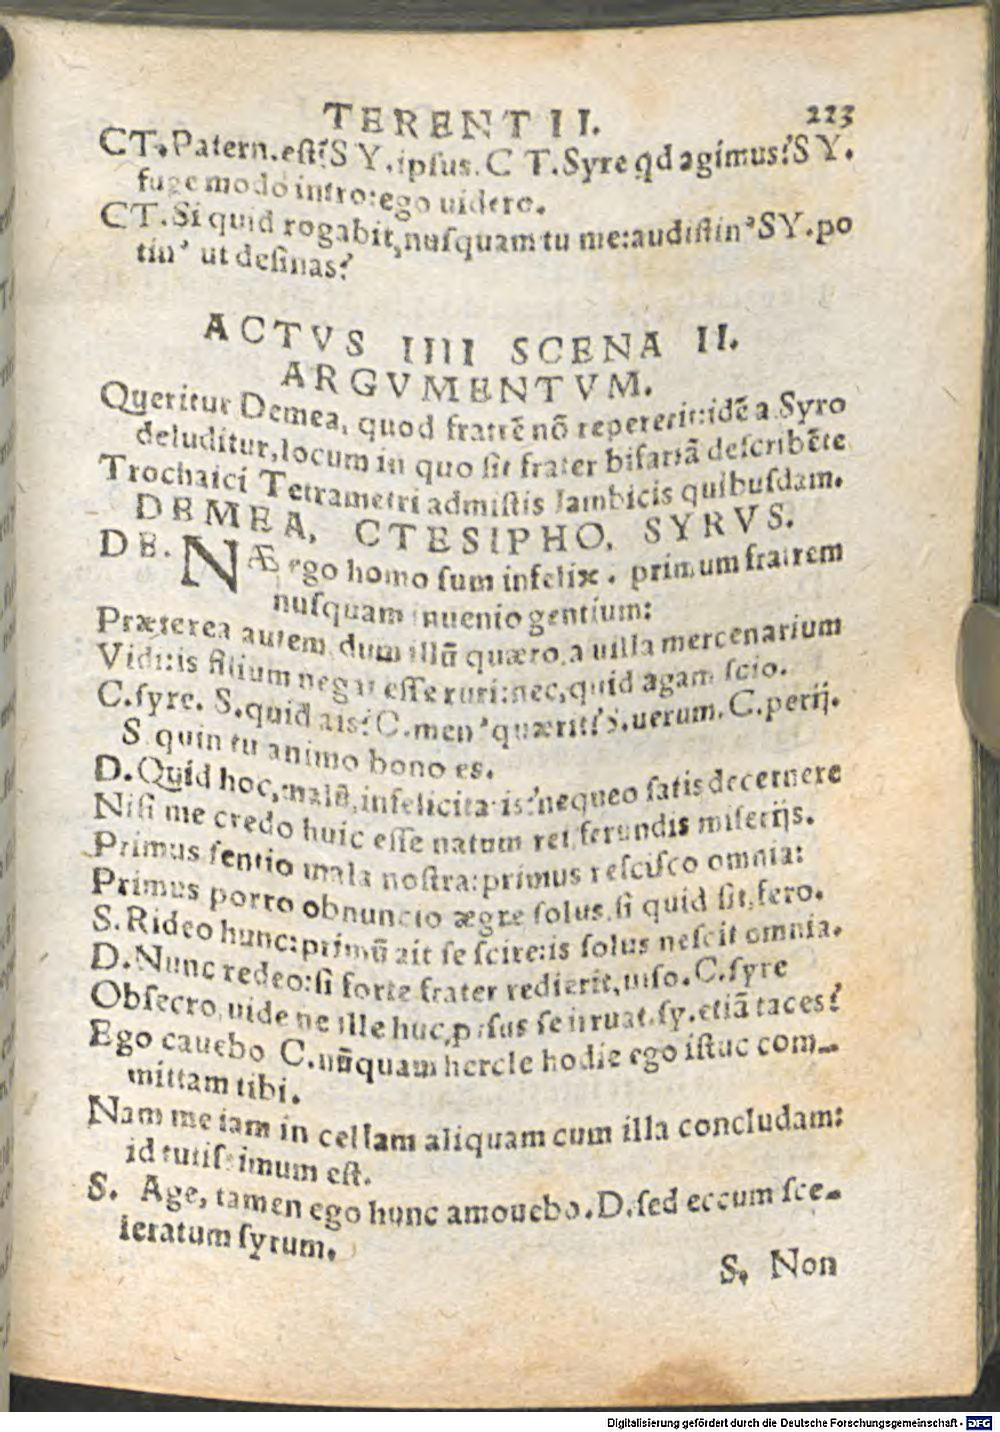 TERENTII. 223
CT. Patern. est? SY. ipsus. CT. Syre qd agimus? SY.
fuge modo intro: ego uidero.
CT. Si quid rogabit, nusquam tu me: audistin' SY. po
tin' ut desinas?
ACTVS IIII SCENA II.
ARGVMENTVM.
Queritur Demea, quod fratrē nō repererit: idē a Syro
deluditur, locum in quo sit frater bifariā describēte
Trochaici Tetrametri admistis Iambicis quibusdam.
DEMEA, CTESIPHO, SYRVS.
DE. NÆ ego homo sum infelix. primum fratrem
nusquam inuenio gentium:
Præterea autem dum illū quæro, a uilla mercenarium
Vidi: is filium negat esse ruri: nec, quid agam scio.
C. syre. S. quid ais? C. men' quærit? S. uerum. C. perij.
S quin tu animo bono es.
D. Quid hoc, malū, infelicitatis? nequeo satis decernere
Nisi me credo huic esse natum rei, ferundis miserijs.
Primus sentio mala nostra: primus rescisco omnia:
Primus porro obnuncio ægre solus, si quid sit, fero.
S. Rideo hunc: primū ait se scire: is solus nescit omnia.
D. Nunc redeo: si forte frater redierit, uiso. C. syre
Obsecro, uide ne ille huc prorsus se irruat. sy. etiā taces?
Ego cauebo C. nūquam hercle hodie ego istuc com-
mittam tibi.
Nam me iam in cellam aliquam cum illa concludam:
id tutissimum est.
S. Age, tamen ego hunc amouebo. D. sed eccum sce-
leratum syrum.
S. Non
Digitalisierung gefördert durch die Deutsche Forschungsgemeinschaft - DFG